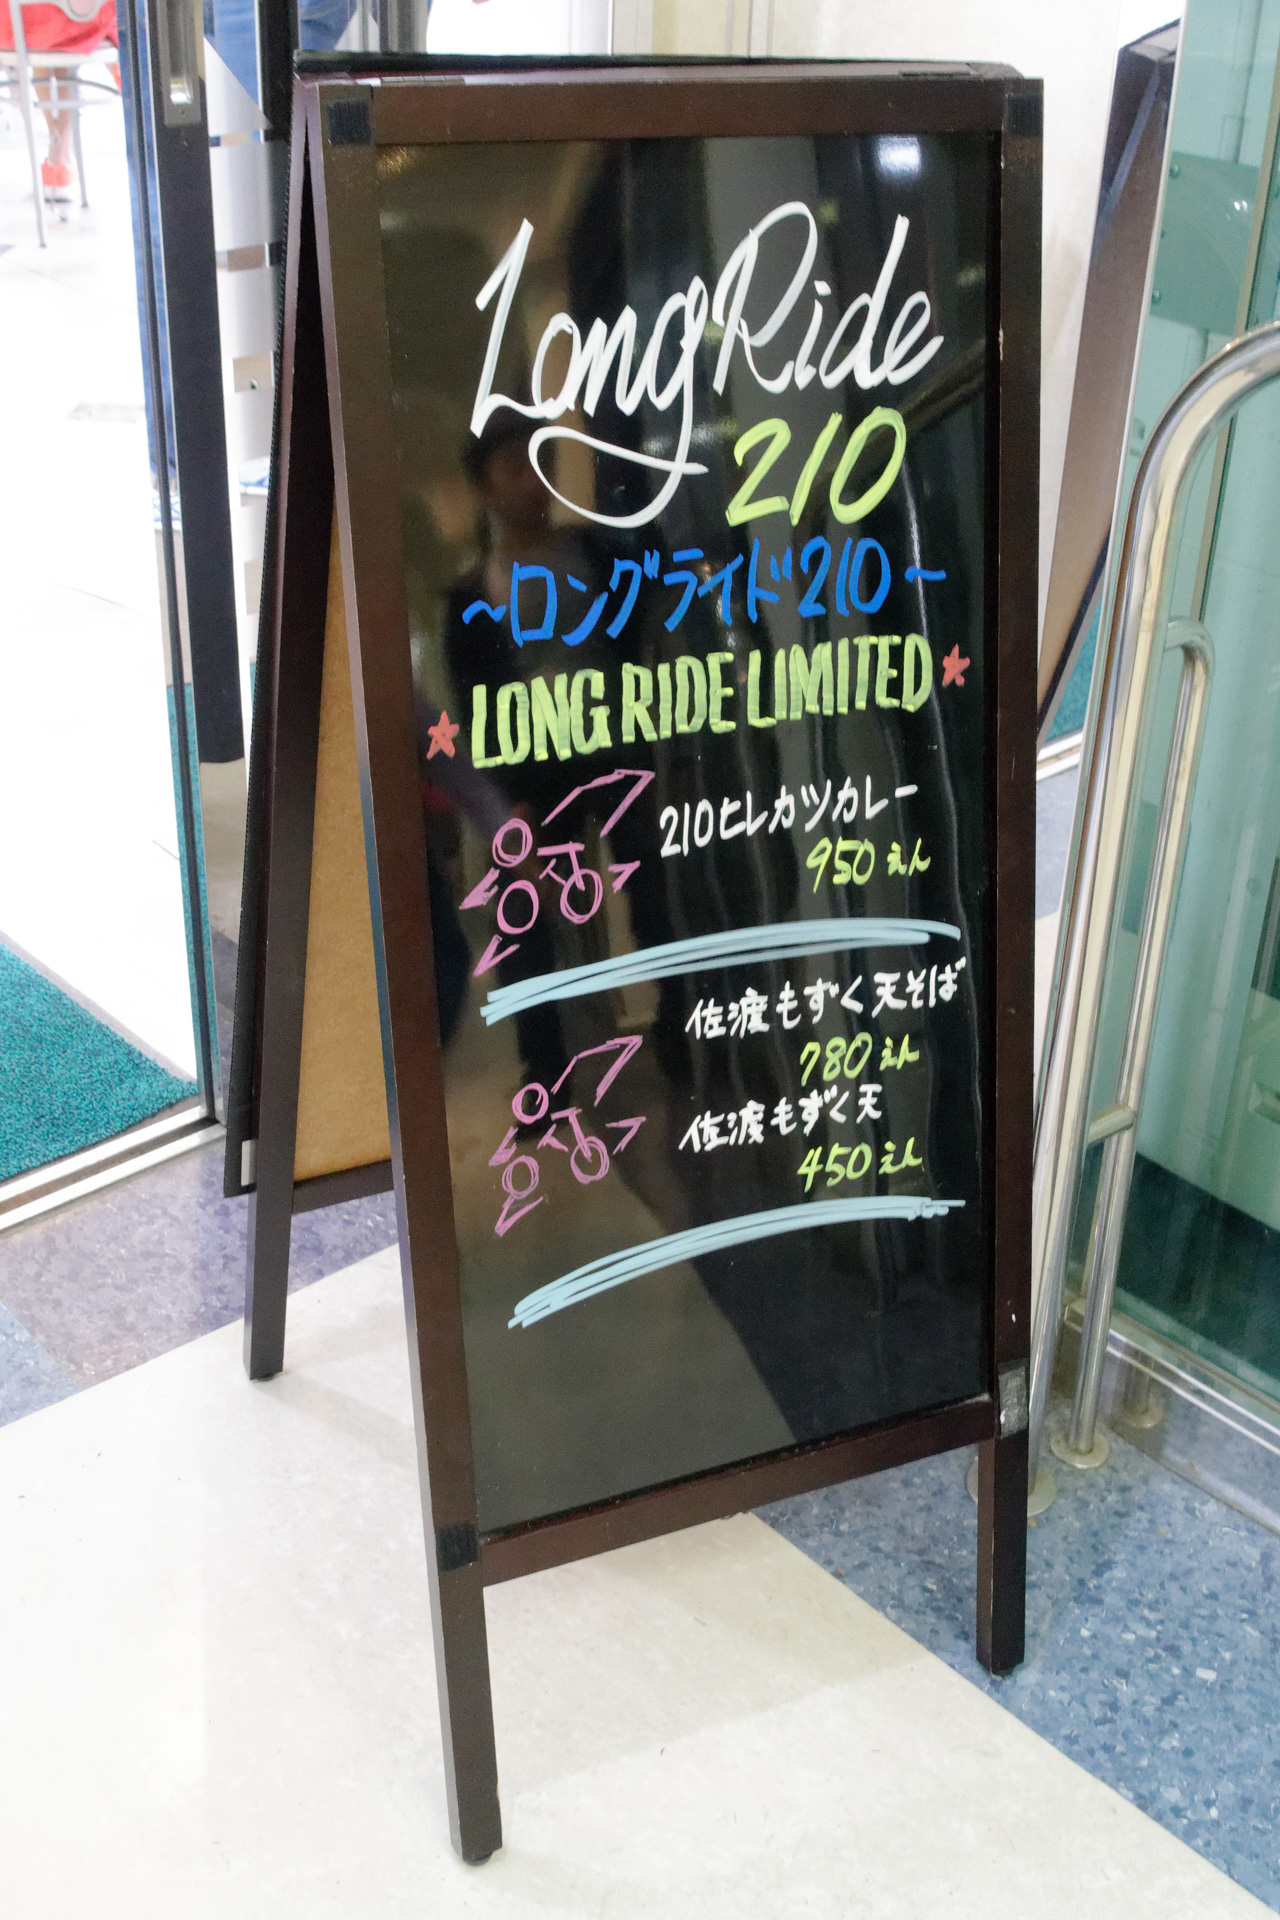 Long Ride
210
~ロングライド210~
★LONG RIDE LIMITED★
210ヒレカツカレー
950えん
佐渡もずく天そば
780えん
佐渡もずく天
450えん